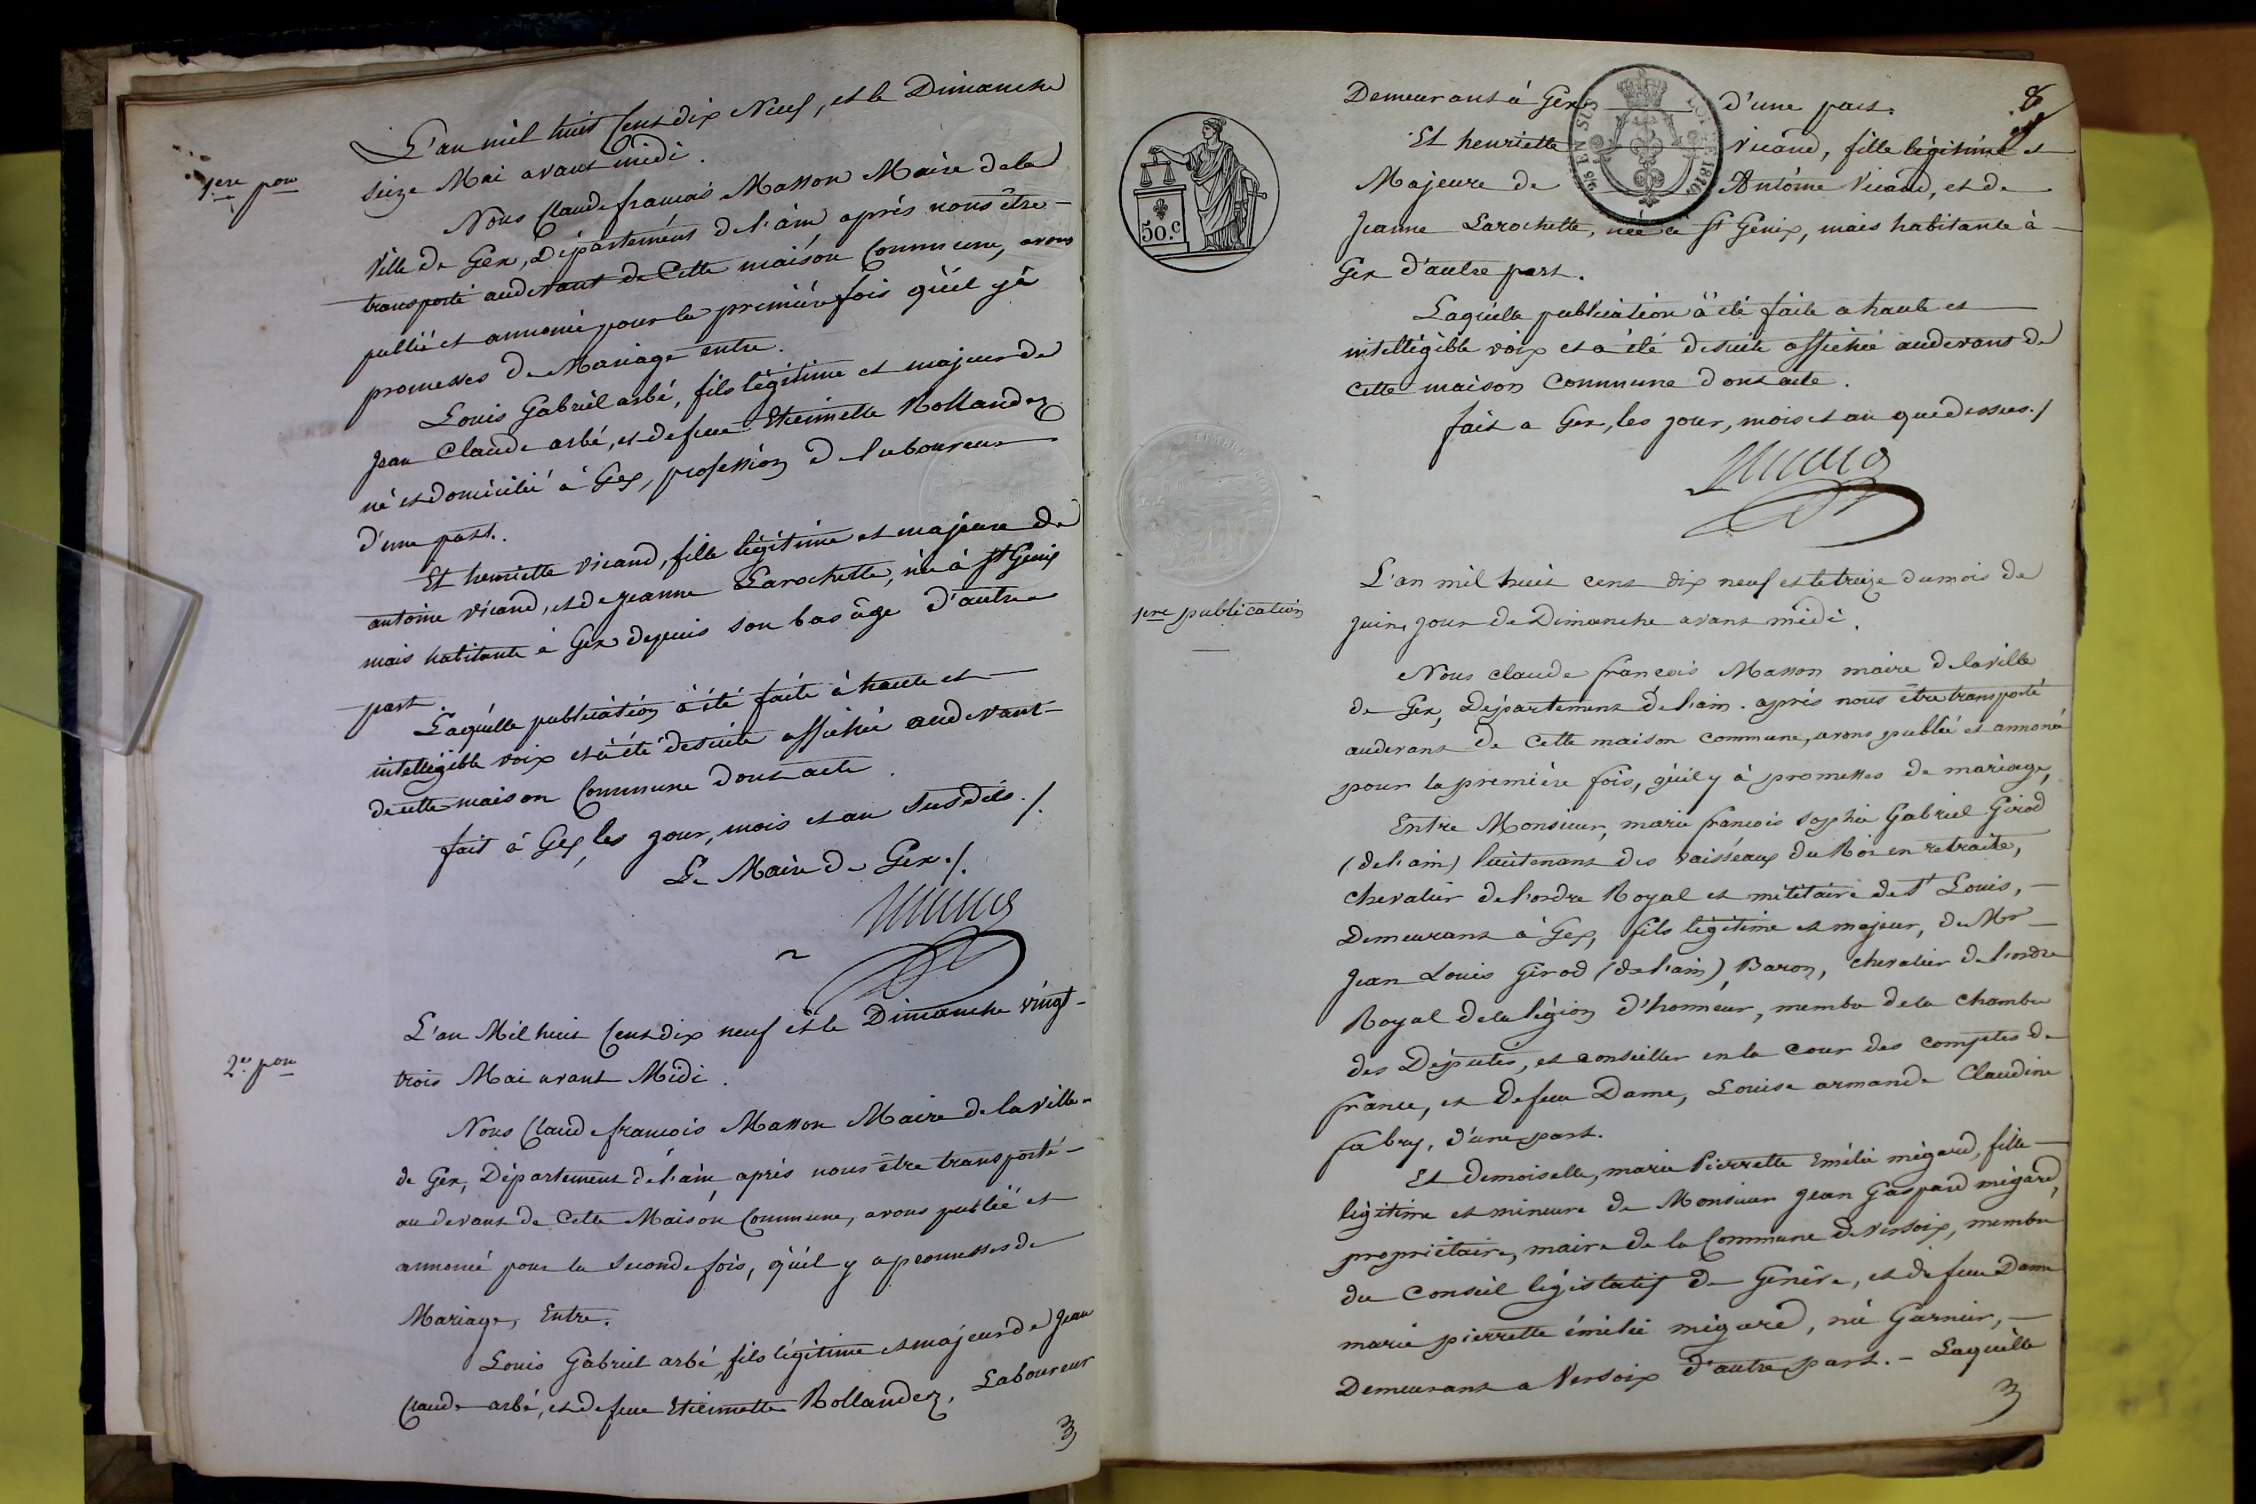 1.ere pon
L'an mil huit Cent dix Neuf, et le Dimanche
Seize Mai avant midi.
Nous Claude françois Masson Maire de la
Ville de Gex, Département de l'ain après nous être
transporté au devant de Cette maison Commune, avons
publié et annoncé pour la première fois qu'il y à
promesses de Mariage entre.
Louis Gabriel arbé, fils légitime et majeur de
Jean Claude arbé, et de feue Etiennette Rollandez
né et domicilié à Gex, profession de laboureur
d'une part.
Et henriette vicand, fille légitime et majeure de
antoine vicand, et de jeanne Larochette, née à St Genix
mais habitante à Gex depuis son bas âge d'autre
part.
Laquelle publication à été faite à haute et
intelligible voix et à été desuite affichée au devant
de cette maison Commune dont acte.
fait à Gex, les jour, mois et an susdits./.
Le Maire de Gex./.
2.e pon
L'an Mil huit Cent dix neuf et le Dimanche vingt-
trois Mai avant Midi.
Nous Claude françois Masson Maire de la ville
de Gex, Département de l'ain, après nous être transporté
au devant de Cette Maison Commune, avons publié et
annoncé pour la seconde fois, qu'il y a promesses de
Mariage, Entre.
Louis Gabriel arbé, fils légitime et majeur de Jean
Claude arbé, et de feue Etiennette Rollandez, Laboureur
8
Demeurant à Gex d'une part.
Et henriette vicand, fille légitime et
Majeure de Antoine Vicand, et de
Jeanne Larochette, née à St Genix, mais habitante à
Gex d'autre part.
Laquelle publication à été faite a haute et
intelligible voix et a été desuite affichée au devant de
cette maison Commune dont acte.
fait a Gex, les jour, mois et an que dessus./
50.c
1ere publication
L'an mil huit cent dix neuf et le treize du mois de
juin, jour de Dimanche avant midi.
Nous claude françois Masson maire de la ville
de Gex, Département de l'ain. après nous être transporté
au devant de cette maison commune, avons publié et annoncé
pour la première fois, qu'il y à promesses de mariage,
Entre Monsieur, marie françois sophie Gabriel Girod
(de l'ain) lieutenant des vaisseaux du Roi en retraite,
chevalier de l'ordre Royal et militaire de St Louis,
Demeurant à Gex, fils légitime et majeur, de Mr
Jean Louis Girod (de l'ain), Baron, chevalier de l'ordre
Royal de la légion d'honneur, membre de la chambre
des Députés, et conseiller en la cour des comptes de
france, et de feue Dame, Louise armande Claudine
fabry, d'une part.
Et demoiselle, marie Pierrette Emélie mégard, fille
légitime et mineure de Monsieur jean Gaspard mégard,
propriétaire, maire de la Commune de Versoix, membre
du Conseil législatif de Genève, et de feue Dame
marie pierrette émélie mégard, née Garnier,
Demeurant a Versoix d'autre part. - Laquelle